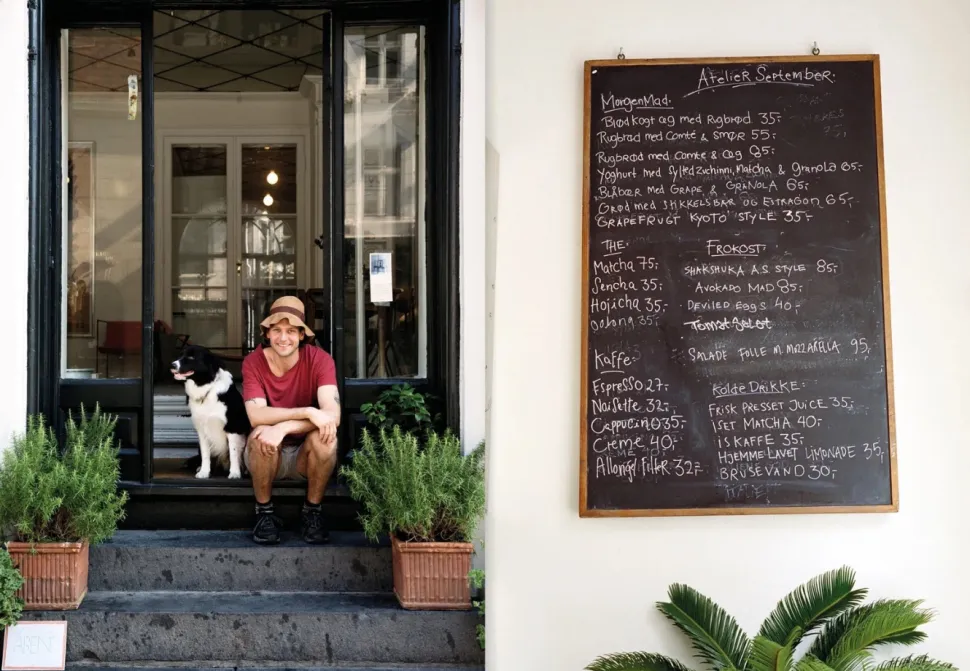 Atelier September.
MorgenMad.
Blødkogt æg med Rugbrød 35,-
Rugbrød med Comté & smør 55,-
Rugbrød med Comte & æg 65,-
Yoghurt med Sylted zuchinni, Matcha & Granola 65,-
Blåbær med Grape & Granola 65,-
Grød med Stikkelsbær og Estragon 65,-
Grapefrugt Kyoto Style 35,-
The:
Matcha 75,-
Sencha 35,-
Hojicha 35,-
Oolong 35,-
Frokost:
Shakshuka A.S. Style 85,-
Avokado Mad 85,-
Deviled Eggs 40,-
Salade Folle m. Mozzarella 95,-
Kaffe:
Espresso 27,-
Noisette 32,-
Cappucino 35,-
Creme 40,-
Allongé/Filter 32,-
Kolde Drikke:
Frisk presset Juice 35,-
Iset Matcha 40,-
is kaffe 35,-
Hjemmelavet Limonade 35,-
Brusevand 30,-